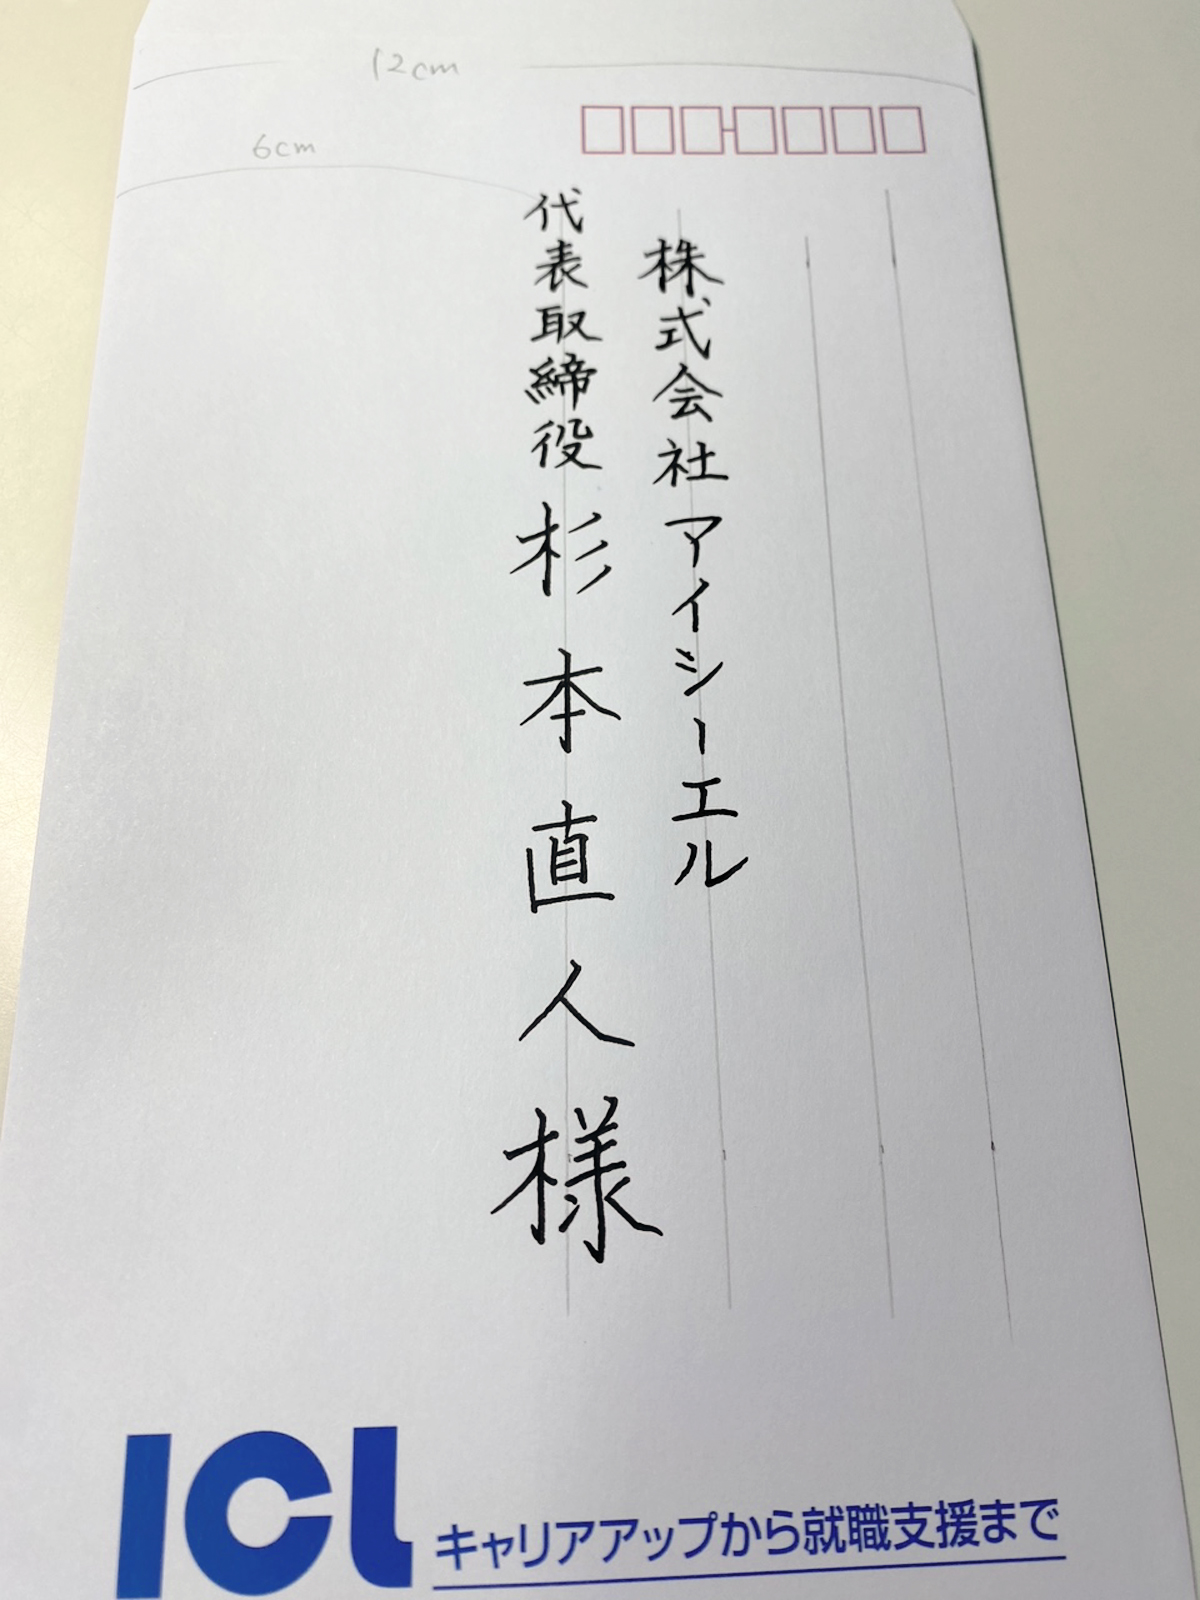 12cm
6cm
株式会社アイシーエル
代表取締役 杉本直人様
ICL
キャリアアップから就職支援まで